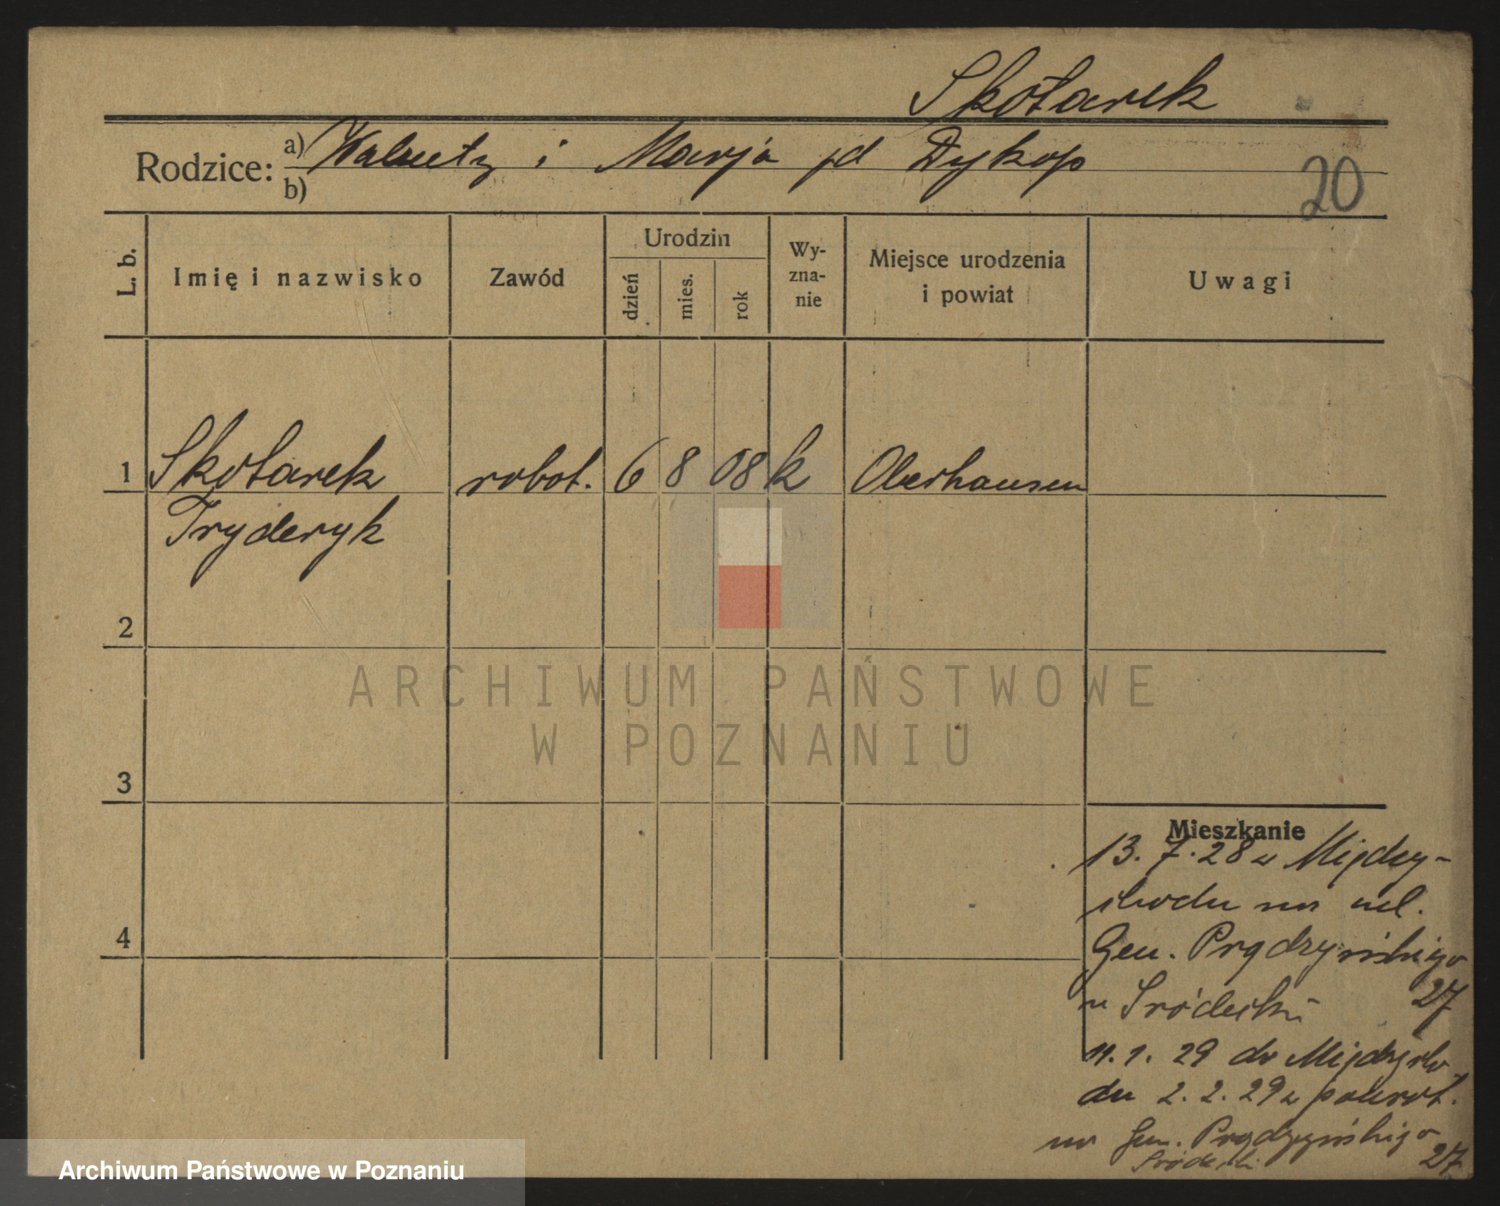 Skotarek
Rodzice:
a) Walenty i Marja yd Dykop
b)
20
L. b.
Imię i nazwisko
Zawód
Urodzin
dzień
mies.
rok
Wy-
zna-
nie
Miejsce urodzenia
i powiat
Uwagi
1 Skotarek robot. 6 8 08 k Oberhausen
Fryderyk
2
3
4
ARCHIWUM PAŃSTWOWE
W POZNANIU
Mieszkanie
13. 7. 28 z Między-
chodu na ul.
Gen. Prądzyńskiego
27
u Śródecki
11. 1. 29 do Międzycho
du 2. 2. 29 z powrot.
na Gen. Prądzyńskiego
27
Śródecki
Archiwum Państwowe w Poznaniu